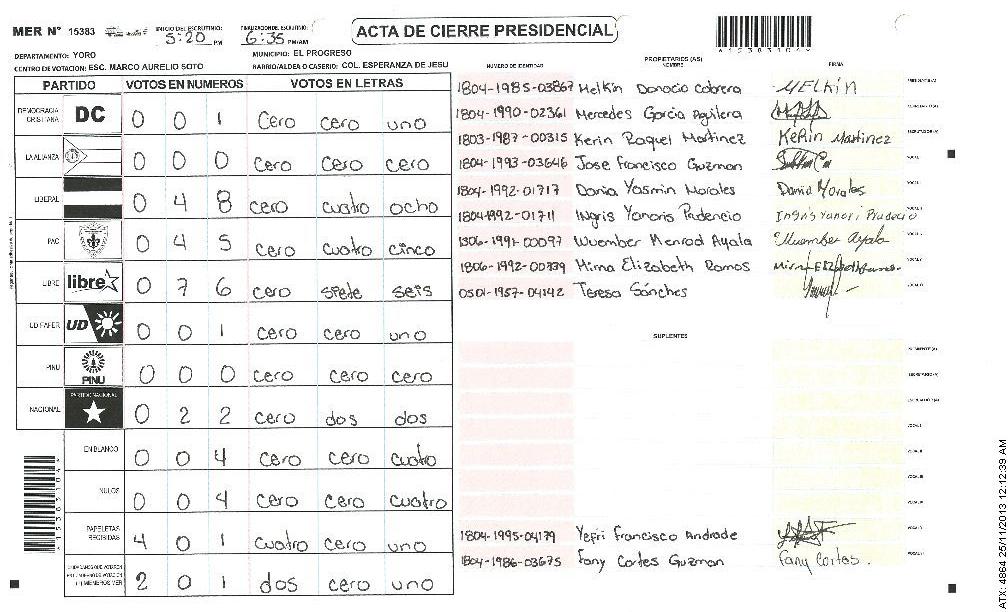 MER Nº 15383
INICIO DEL ESCRUTINIO: 5:20 PM
FINALIZACION DEL ESCRUTINIO: 6:35 PM/AM
ACTA DE CIERRE PRESIDENCIAL
DEPARTAMENTO: YORO
MUNICIPIO: EL PROGRESO
CENTRO DE VOTACION: ESC. MARCO AURELIO SOTO
BARRIO/ALDEA O CASERIO: COL. ESPERANZA DE JESU
PARTIDO VOTOS EN NUMEROS VOTOS EN LETRAS
DEMOCRACIA CRISTIANA DC 0 0 1 cero cero uno
LA ALIANZA 0 0 0 cero cero cero
LIBERAL 0 4 8 cero cuatro ocho
PAC 0 4 5 cero cuatro cinco
LIBRE libre 0 7 6 cero siete seis
UD FAPER UD 0 0 1 cero cero uno
PINU PINU 0 0 0 cero cero cero
NACIONAL PARTIDO NACIONAL 0 2 2 cero dos dos
EN BLANCO 0 0 4 cero cero cuatro
NULOS 0 0 4 cero cero cuatro
PAPELETAS RECIBIDAS 4 0 1 cuatro cero uno
CIUDADANOS QUE VOTARON
2 0 1 dos cero uno
NUMERO DE IDENTIDAD PROPIETARIOS (AS) NOMBRE FIRMA
1804-1985-03867 Melkin Donocio Cabrera MELKIN
1804-1990-02361 Mercedes Garcia Aguilera
1803-1987-00315 Kerin Raquel Martinez Kerin Martinez
1804-1993-03646 Jose Francisco Guzman
1804-1992-01717 Dania Yasmin Morales Dania Morales
1804-1992-01711 Ingris Yanoris Prudencio
1306-1991-00097 Wuember Menrod Ayala Wuember Ayala
1806-1992-00339 Mirna Elizabeth Ramos
0501-1957-04142 Teresa Sánches
SUPLENTES
1804-1995-04179 Yefri Francisco Andrade
1804-1986-03675 Fany Cortes Guzman Fany Cortes.
ATX: 4864 25/11/2013 12:12:39 AM